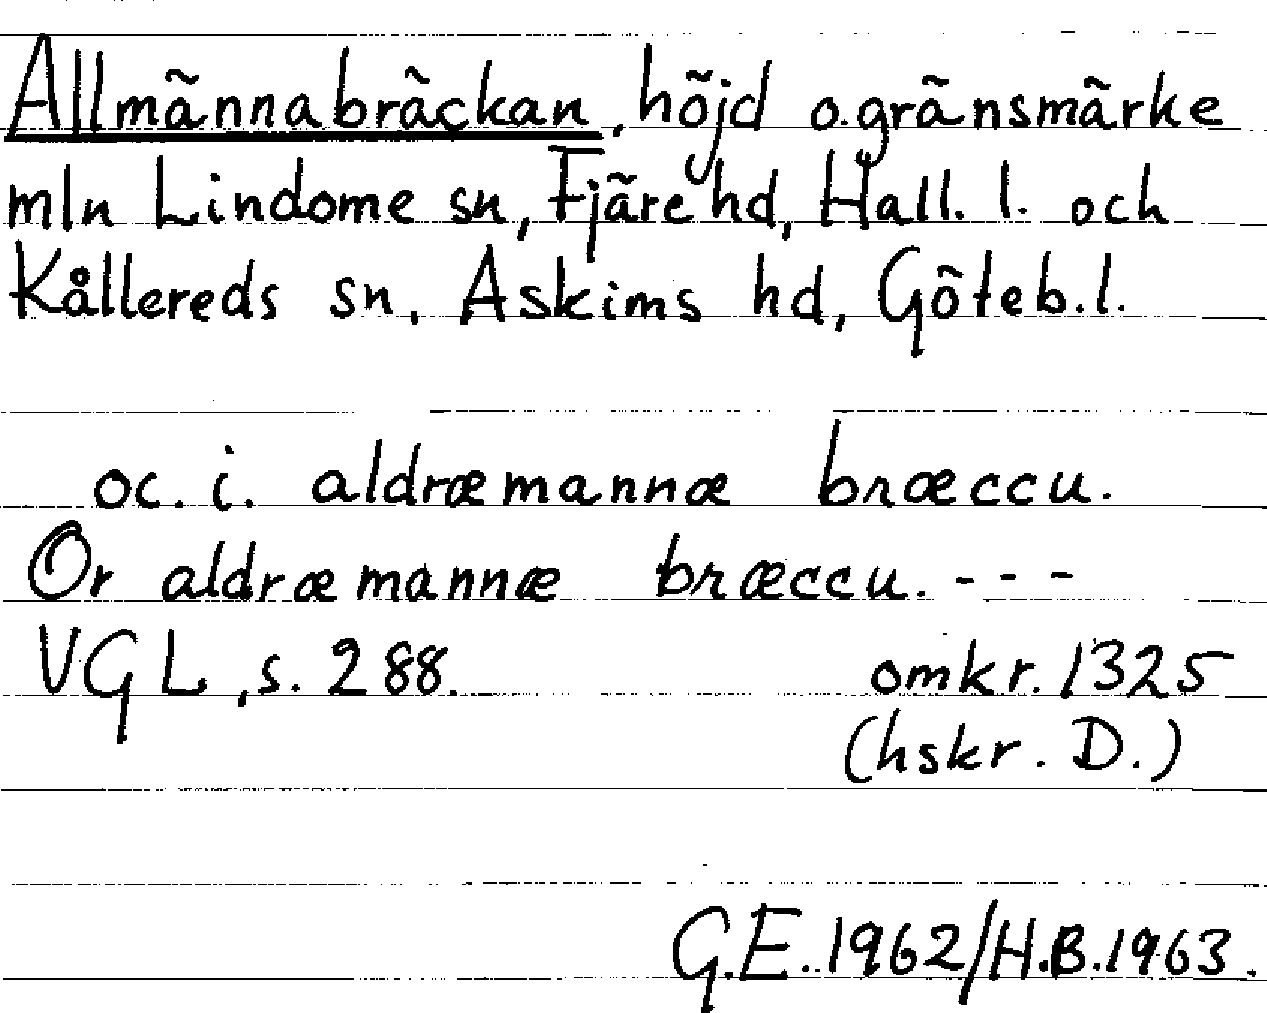 Allmännabräckan, höjd o. gränsmärke
mln Lindome sn, Fjäre hd, Hall. l. och
Kållereds sn, Askims hd, Göteb. l.
oc. i. aldræmannæ bræccu.
Or aldræmannæ bræccu. - - -
VGL, s. 288. omkr. 1325
(hskr. D.)
G.E. 1962/H.B. 1963.